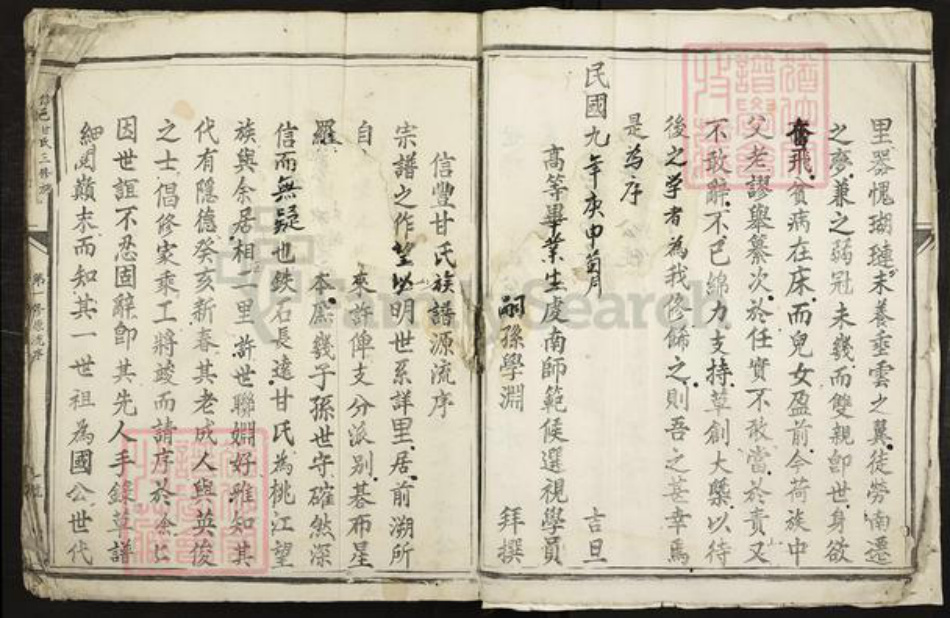 里器愧瑚璉未養垂雲之翼徒勞南遷
之夢兼之弱冠未幾而雙親卽世身欲
奮飛貧病在床而兒女盈前今荷族中
父老謬舉纂次於任實不敢當於責又
不敢辭不已綿力支持草創大槩以待
後之学者為我修餙之則吾之甚幸焉
是為序
民國九年庚申 月 吉旦
高等畢業生虔南師範候選視學員
嗣孫學淵 拜撰
信豐甘氏族譜源流序
宗譜之作望以明世系詳里居前溯所
自 來許俾支分派別碁布星
羅 本 幾子孫世守確然深
信而無疑也鉄石長遠甘氏為桃江望
族與余居相二里許世聯婣好雅知其
代有隱德癸亥新春其老成人與英俊
之士倡修家乘工將竣而請序於余
因世誼不忍固辭卽其先人手錄草譜
細閱巔末而知其一世祖為國公世代
甘氏三修
第一修源流序
FamilySearch